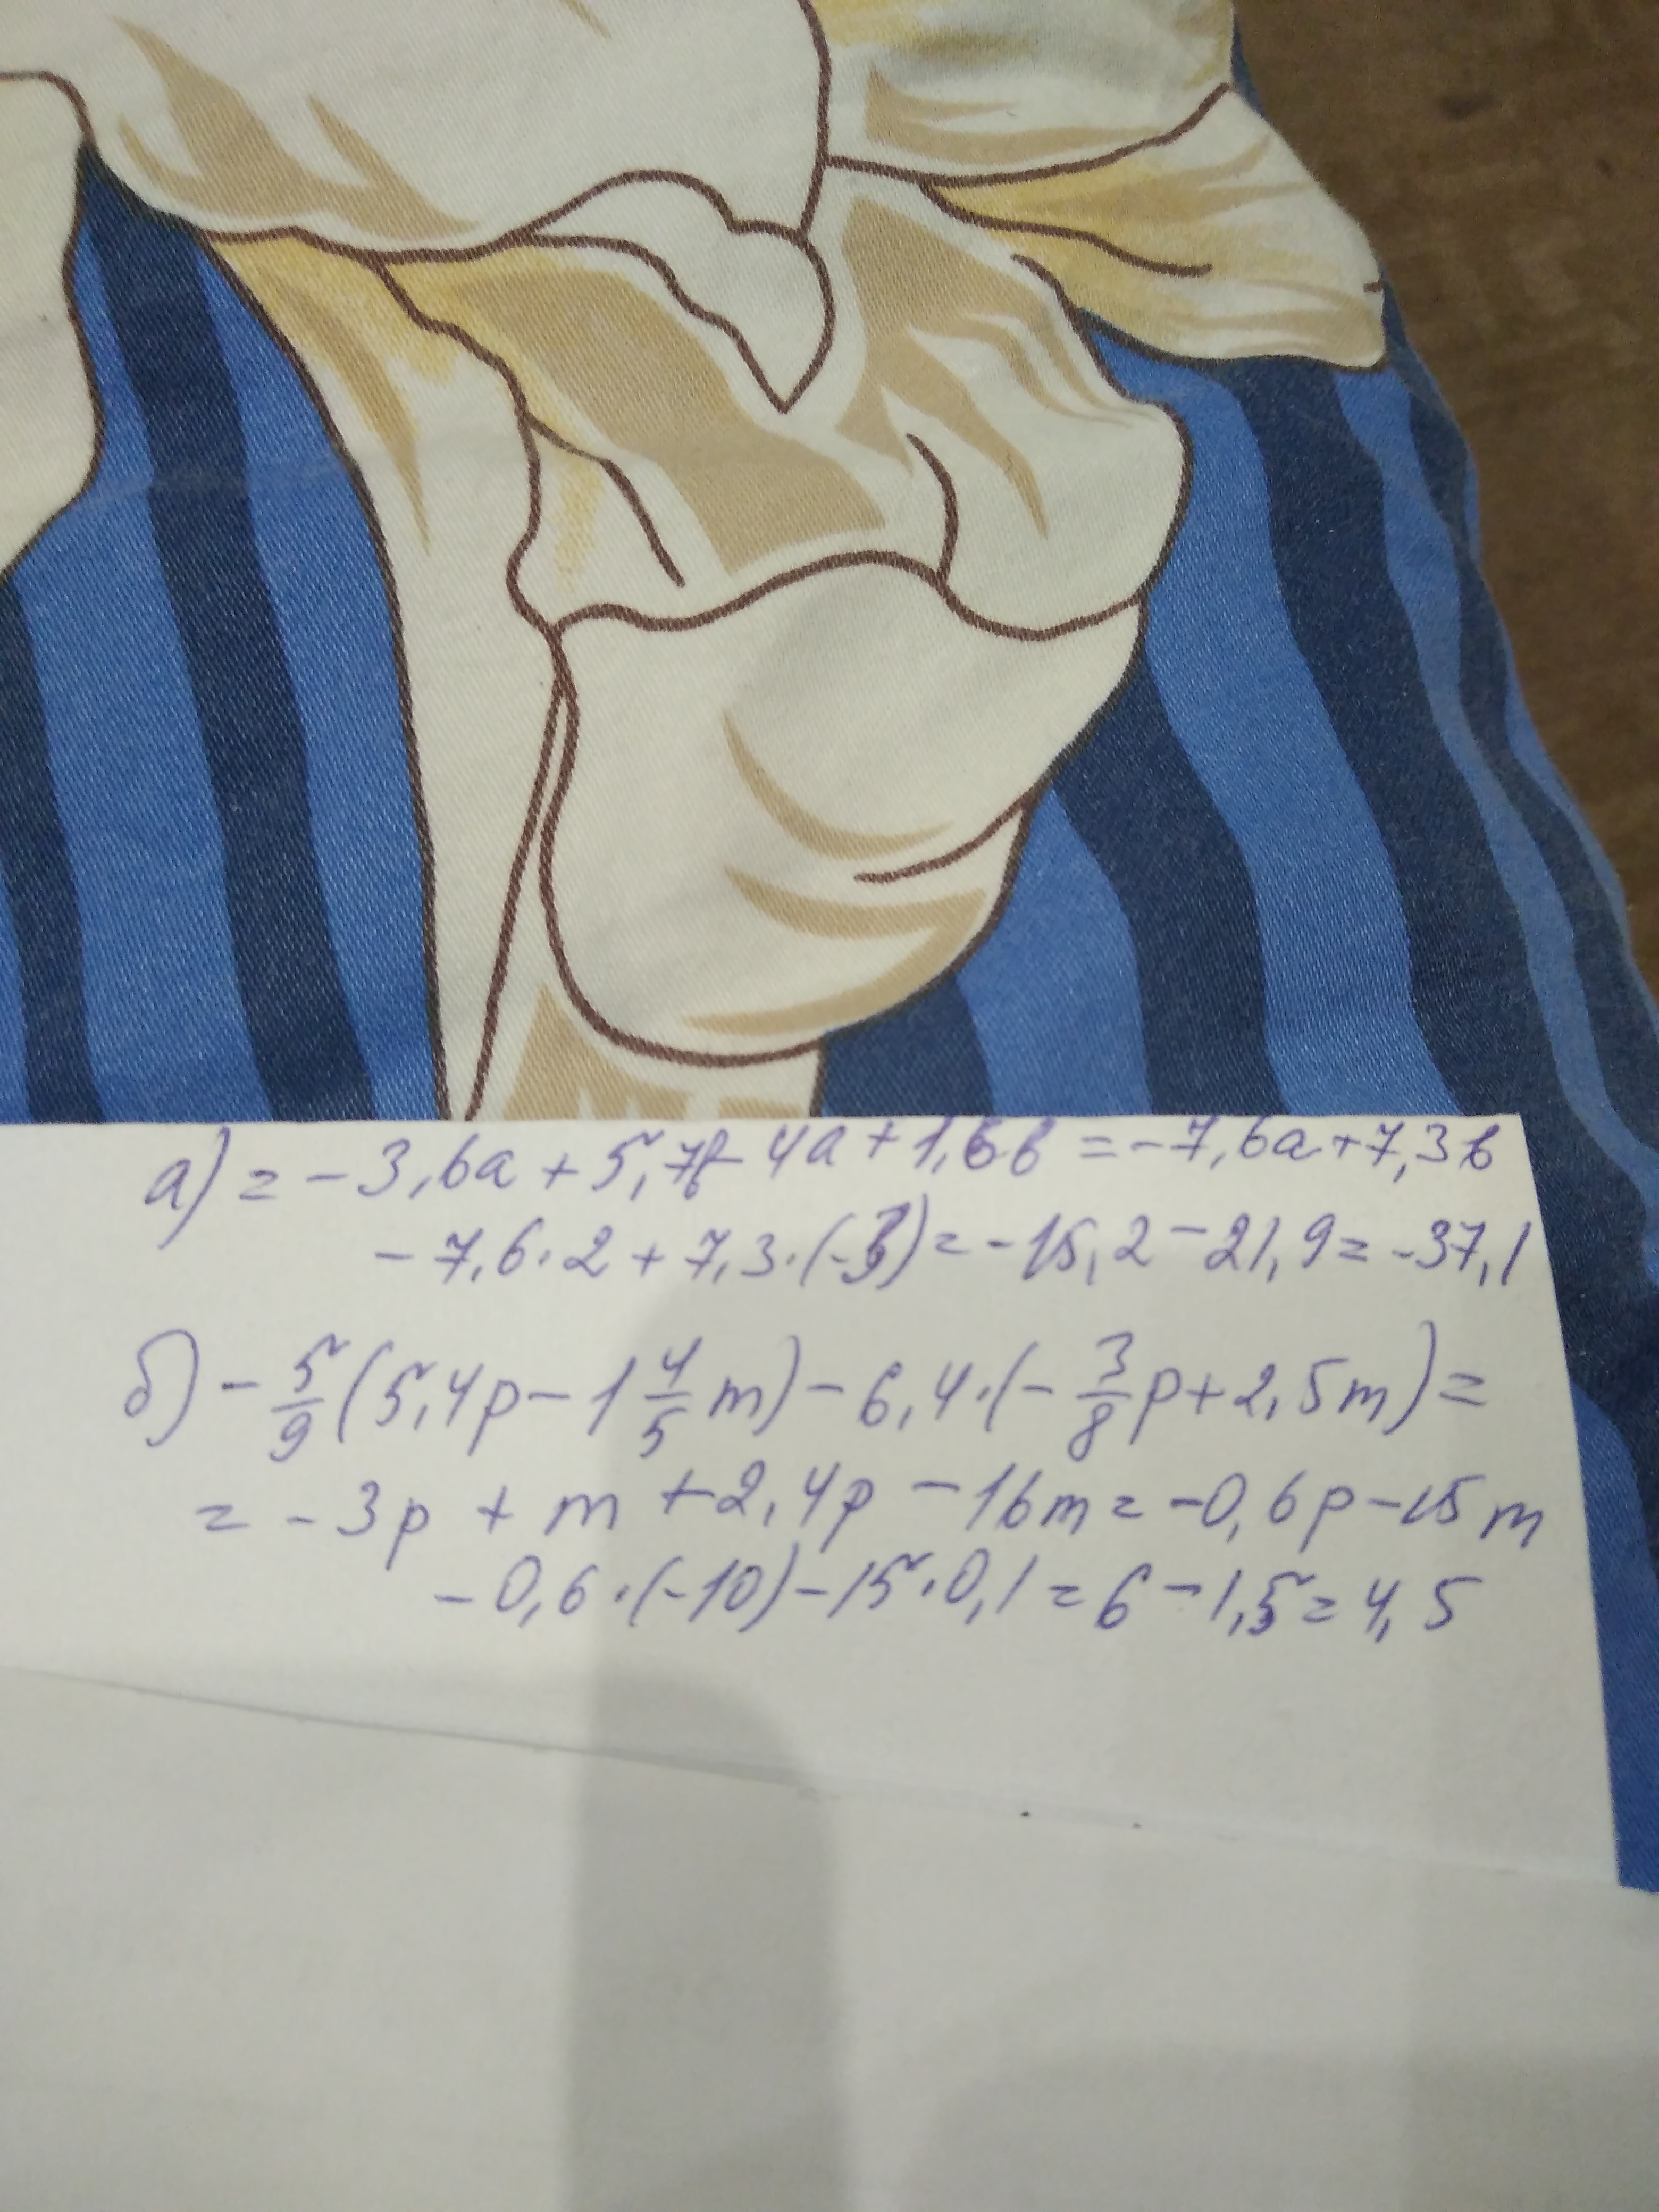 а) = -3,6а + 5,7в - 4а + 1,6в = -7,6а + 7,3в
-7,6·2 + 7,3·(-3) = -15,2 - 21,9 = -37,1
б) -5/9(5,4p - 1 4/5 m) - 6,4·(-3/8 p + 2,5m) =
= -3p + m + 2,4p - 16m = -0,6p - 15m
-0,6·(-10) - 15·0,1 = 6 - 1,5 = 4,5